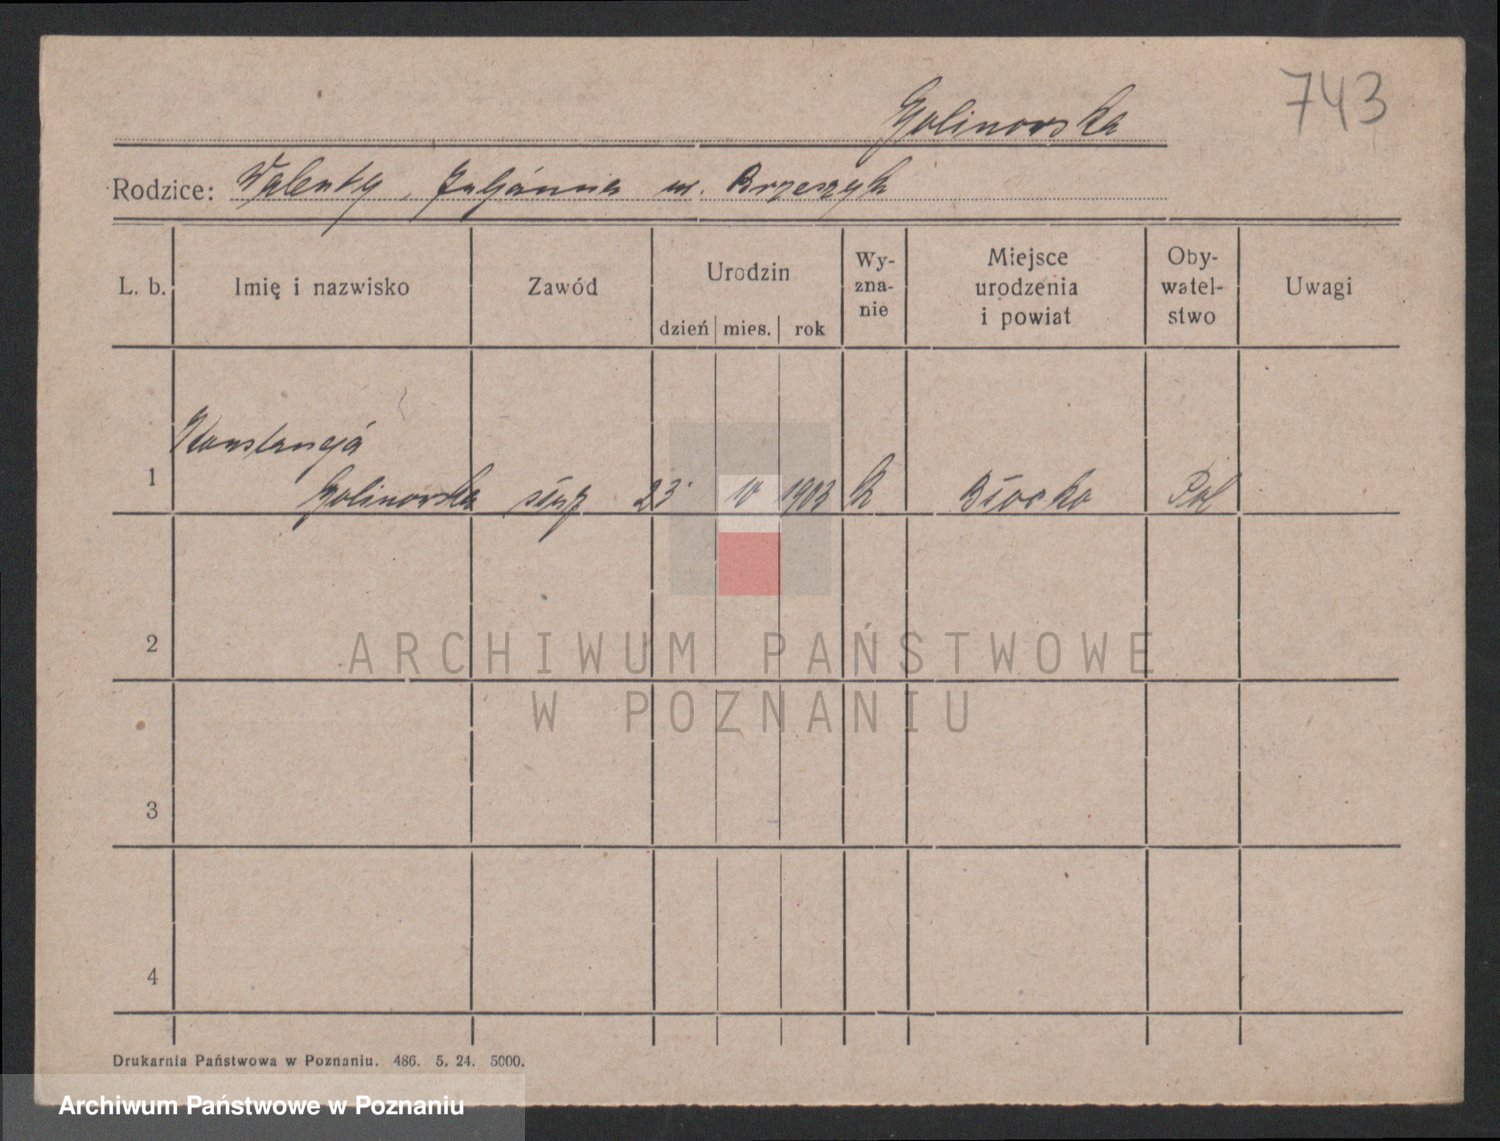 743
Golinowska
Rodzice: Walenty, Juljanna
L. b. Imię i nazwisko Zawód Urodzin dzień mies. rok Wy-zna-nie Miejsce urodzenia i powiat Oby-watel-stwo Uwagi
Konstancja
1 Golinowska służ 23 10 1903 k Pol
2
ARCHIWUM PAŃSTWOWE
W POZNANIU
3
4
Drukarnia Państwowa w Poznaniu. 486. 5. 24. 5000.
Archiwum Państwowe w Poznaniu